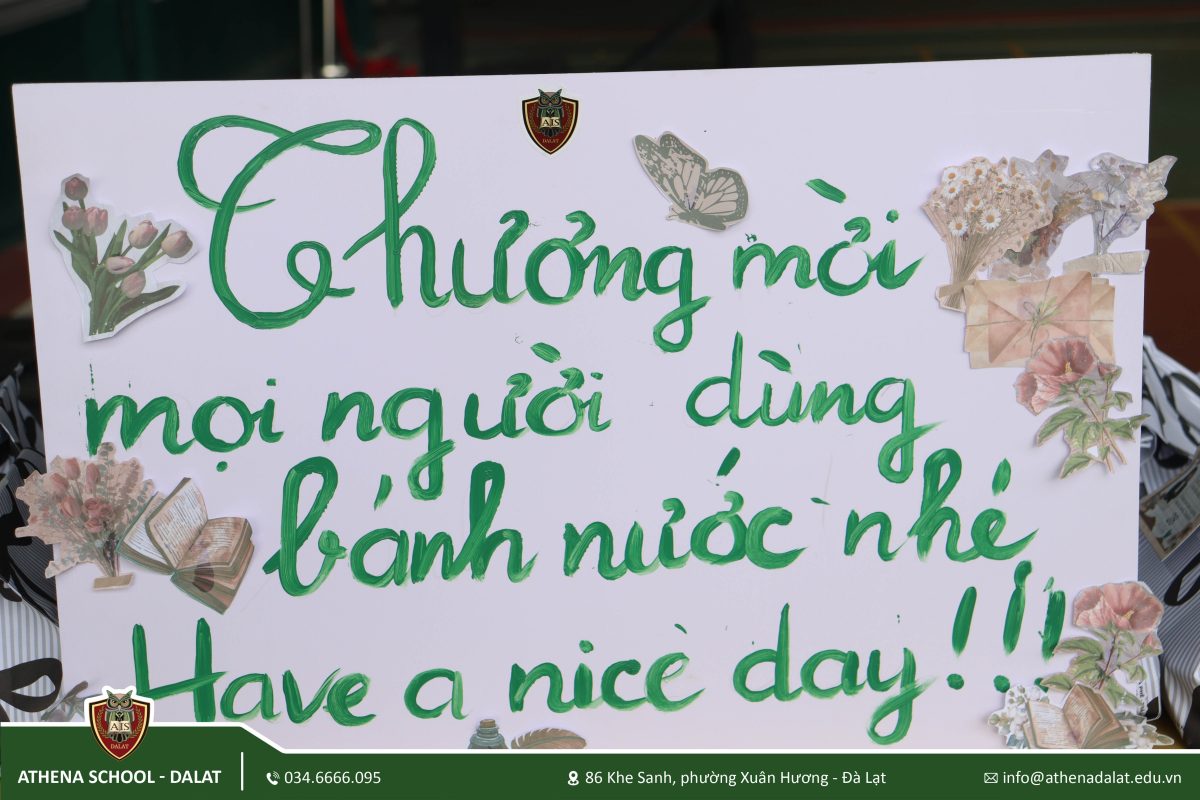 AIS
DALAT
Thương mời
mọi người dùng
bánh nước nhé
Have a nice day!!!
AIS
DALAT
ATHENA SCHOOL - DALAT
034.6666.095
86 Khe Sanh, phường Xuân Hương - Đà Lạt
info@athenadalat.edu.vn